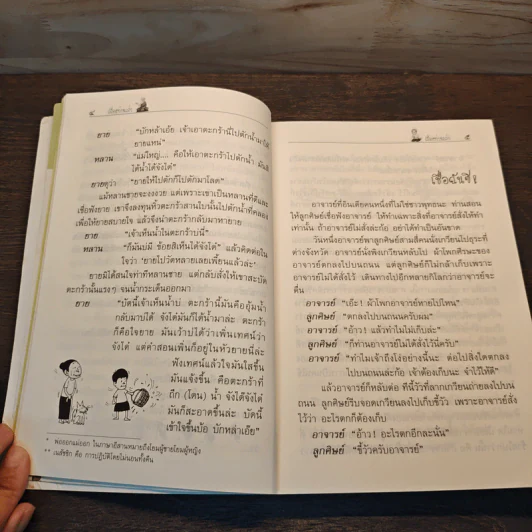 ๔
ยาย "บักหล้าเอ้ย เจ้าเอาตะกร้านี้ไปตักน้ำมาให้
ยายแหน่"
หลาน "แม่ใหญ่.... คือให้เอาตะกร้าไปตักน้ำ มันสิ
ได้น้ำได้จังใด๋"
ยายดุว่า "ยายให้ไปตักก็ไปตักมาโลด"
แม้หลานชายจะงงงวย แต่เพราะเขาเป็นหลานที่ดีและ
เชื่อฟังยาย เขาจึงลงทุนหิ้วตะกร้าสานใบนั้นไปตักน้ำที่คลอง
เพื่อให้ยายสบายใจ แล้วจึงนำตะกร้ากลับมาหายาย
ยาย "เจ้าเห็นน้ำในตะกร้าบ่นี่"
หลาน "ก็มันบ่มี ข้อยสิเห็นได้จังใด๋" แล้วคิดต่อใน
ใจว่า 'ยายไปวัดหลายเลยเพี้ยนแล้วล่ะ'
ยายมิได้สนใจท่าทีหลานชาย แต่กลับสั่งให้เขาสะบัด
ตะกร้านั้นแรงๆ จนน้ำกระเด็นออกมา
ยาย "บัดนี้เจ้าเห็นน้ำบ่ ตะกร้านี้มันคืออุ้มน้ำ
กลับมาบ่ได้ จังใด๋มันก็ได้น้ำมาล่ะ ตะกร้า
ก็คือใจยาย มันเว้าบ่ได้ว่าเพิ่นเทศน์ว่า
จังใด๋ แต่คำสอนเพิ่นก็อยู่ในหัวยายนี่ล่ะ
ฟังเทศน์แล้วใจมันใสขึ้น
มันแจ้งขึ้น คือตะกร้าที่
ถืก (โดน) น้ำ จังใด๋จังใด๋
มันก็สะอาดขึ้นล่ะ บัดนี้
เข้าใจขึ้นบ้อ บักหล้าเอ้ย"
* พ่อออกแม่ออก ในภาษาอีสานหมายถึงโยมผู้ชายโยมผู้หญิง
** เนสัชชิก คือ การปฏิบัติโดยไม่นอนทั้งคืน
๕
เชื่อฉันสิ !
อาจารย์ที่อินเดียคนหนึ่งที่ไม่ใช่ชาวพุทธนะ ท่านสอน
ให้ลูกศิษย์เชื่อฟังอาจารย์ ให้ทำเฉพาะสิ่งที่อาจารย์สั่งให้ทำ
เท่านั้น ถ้าอาจารย์ไม่สั่งล่ะก้อ อย่าได้ทำเป็นอันขาด
วันหนึ่งอาจารย์พาลูกศิษย์สามสี่คนนั่งเกวียนไปธุระที่
ต่างจังหวัด อาจารย์นั่งพิงเกวียนหลับไป ผ้าโพกศีรษะของ
อาจารย์ตกลงไปบนถนน แต่ลูกศิษย์ก็ไม่กล้าเก็บเพราะ
อาจารย์ไม่ได้สั่งไว้ เดินทางไปอีกหลายกิโลกว่าอาจารย์จะ
ตื่น
อาจารย์ "เอ๊ะ! ผ้าโพกอาจารย์หายไปไหน"
ลูกศิษย์ "ตกลงไปบนถนนครับผม"
อาจารย์ "อ้าว! แล้วทำไมไม่เก็บล่ะ"
ลูกศิษย์ "ก็ท่านอาจารย์ไม่ได้สั่งไว้นี่ครับ"
อาจารย์ "ทำไมเจ้าถึงโง่อย่างนี้นะ ต่อไปสิ่งใดตกลง
ไปบนถนนล่ะก้อ เจ้าต้องเก็บนะ จำไว้ให้ดี"
แล้วอาจารย์ก็หลับต่อ ทีนี้วัวที่ลากเกวียนถ่ายลงไปบน
ถนน ลูกศิษย์รีบจอดเกวียนลงไปเก็บขี้วัว เพราะอาจารย์สั่ง
ไว้ว่า อะไรตกก็ต้องเก็บ
อาจารย์ "อ้าว! อะไรตกอีกละนั่น"
ลูกศิษย์ "ขี้วัวครับอาจารย์"